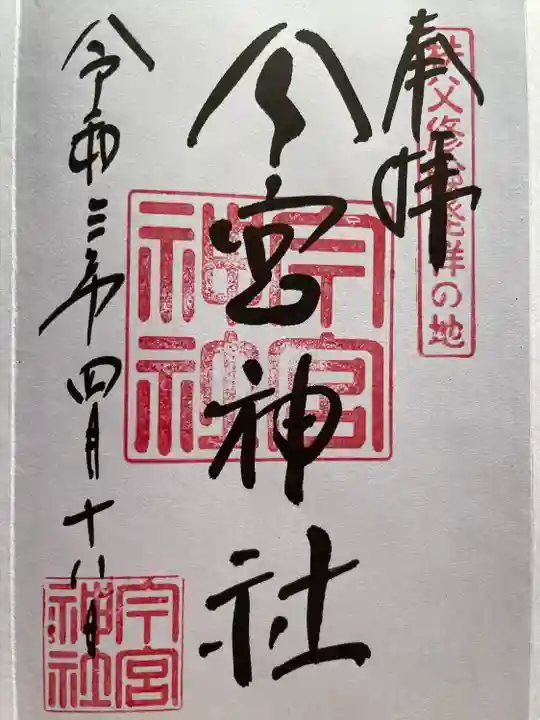 奉拝
秩父修験発祥の地
今宮神社
今宮神社
令和三年四月十八日
今宮神社